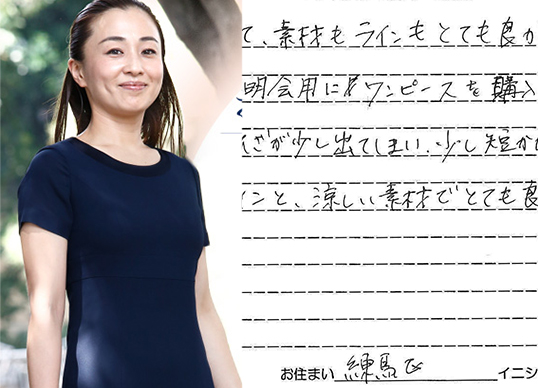 て、素材もラインもとても良か
明会用にワンピースを購入
さが少し出てしまい、少し短か
ンと、涼しい素材でとても良
お住まい 練馬区 イニシ